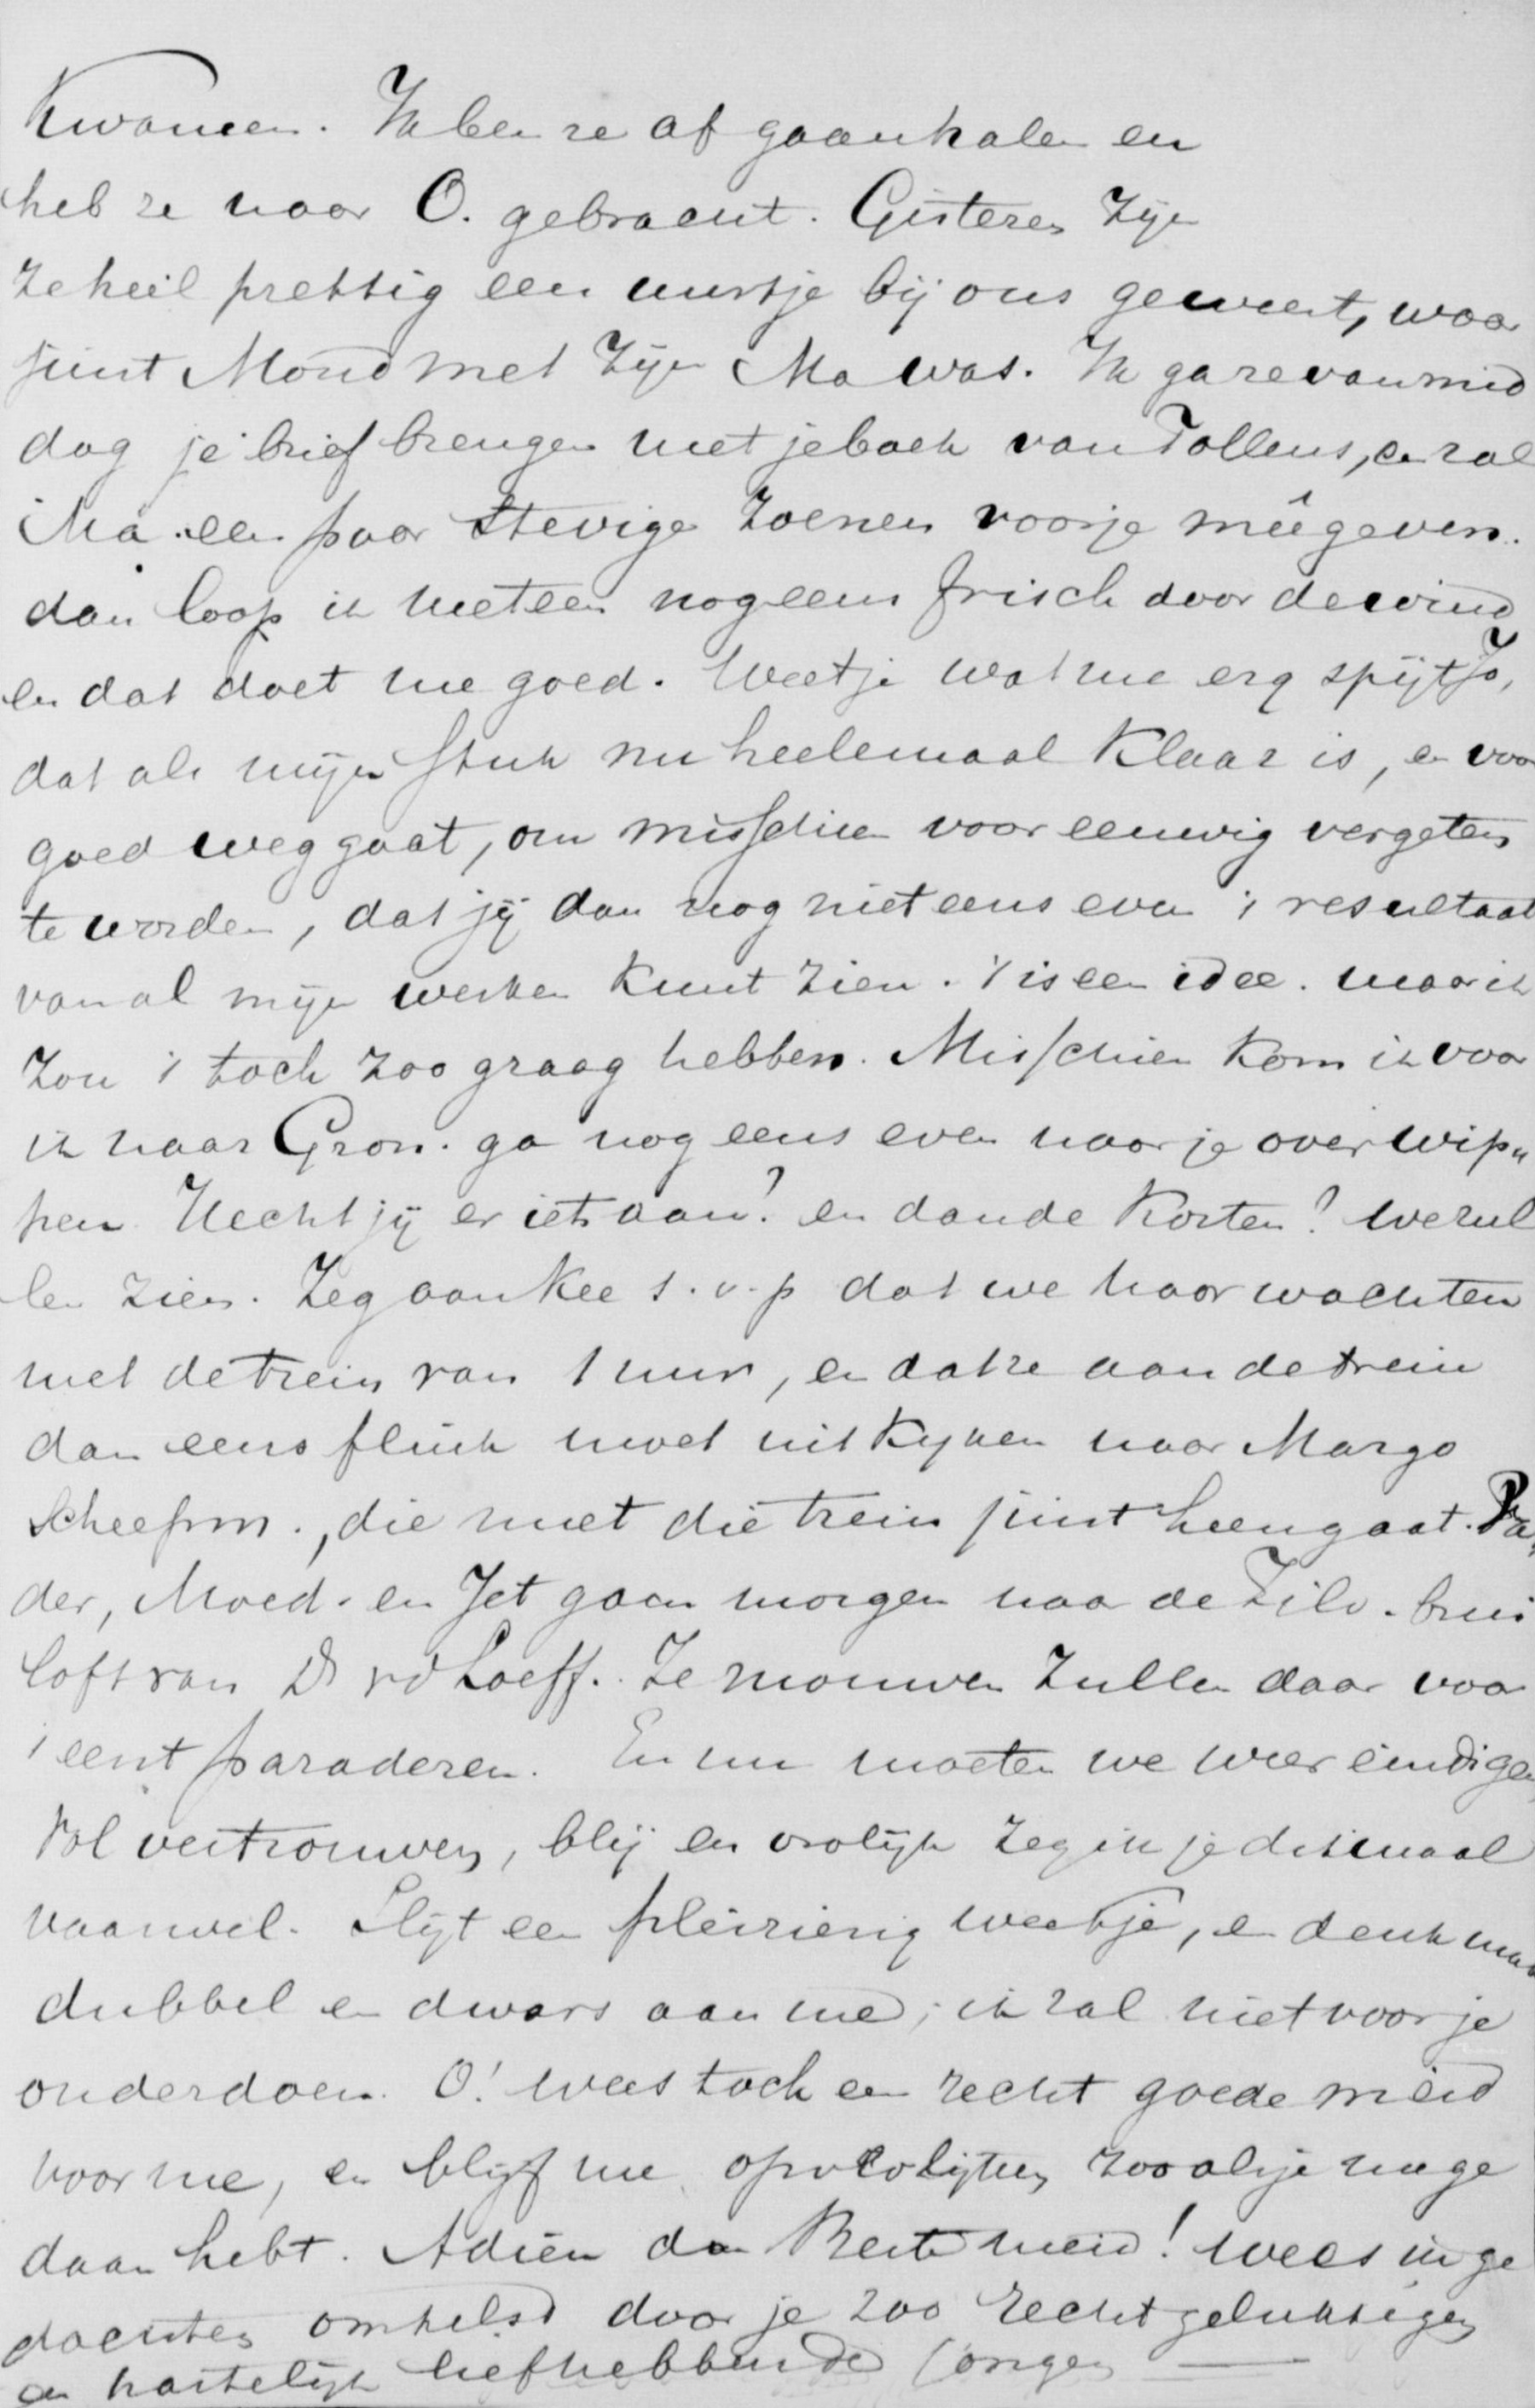 Kwamen. Ik ben ze af gaan halen en
heb ze naar O. gebracht. Gisteren zijn
ze heel prettig een uurtje bij ons geweest, waar
juist Mond met zijn Ma was. Ik ga ze van mid
dag je brief brengen met je boek van Tollens, en zal
Ma een paar stevige zoenen voor je meêgeven.
dan loop ik meteen nog eens frisch door de wind
en dat doet me goed. Weet je wat me erg spijt Jo,
dat als mijn stuk nu heelemaal klaar is, en voor
goed weg gaat, om misschien voor eeuwig vergeten
te worden, dat jij dan nog niet eens even 't resultaat
van al mijn werken kunt zien. 't is een idee. maar ik
zou 't toch zoo graag hebben. Misschien kom ik voor
ik naar Gron. ga nog eens even naar je overwip„
pen. Hecht jij er iets aan? en dan de kosten? we zul
len zien. Zeg aan Kee s.v.p dat we haar wachten
met de trein van 1 uur, en dat ze aan de trein
dan eens flink moet uitkijken naar Margo
Scheepm., die met die trein juist heengaat. Va„
der, Moed. en Jet gaan morgen naar de Zilv. brui
loft van Ds vd Loeff. Ze mouwen zullen daar voor
't eerst paraderen. En nu moeten we weer eindigen,
Vol vertrouwen, blij en vrolijk zeg ik je ditmaal
vaarwel. Slijt een pleizierig weekje, en denk maar
dubbel en dwars aan me; ik zal niet voor je
onderdoen. O! wees toch een recht goede meid
voor me, en blijf me opvrolijken zooals je me ge
daan hebt. Adieu dan Beste meid! wees in ge
dachten omhelsd door je zoo recht gelukkigen
en hartelijk liefhebbende jongen —